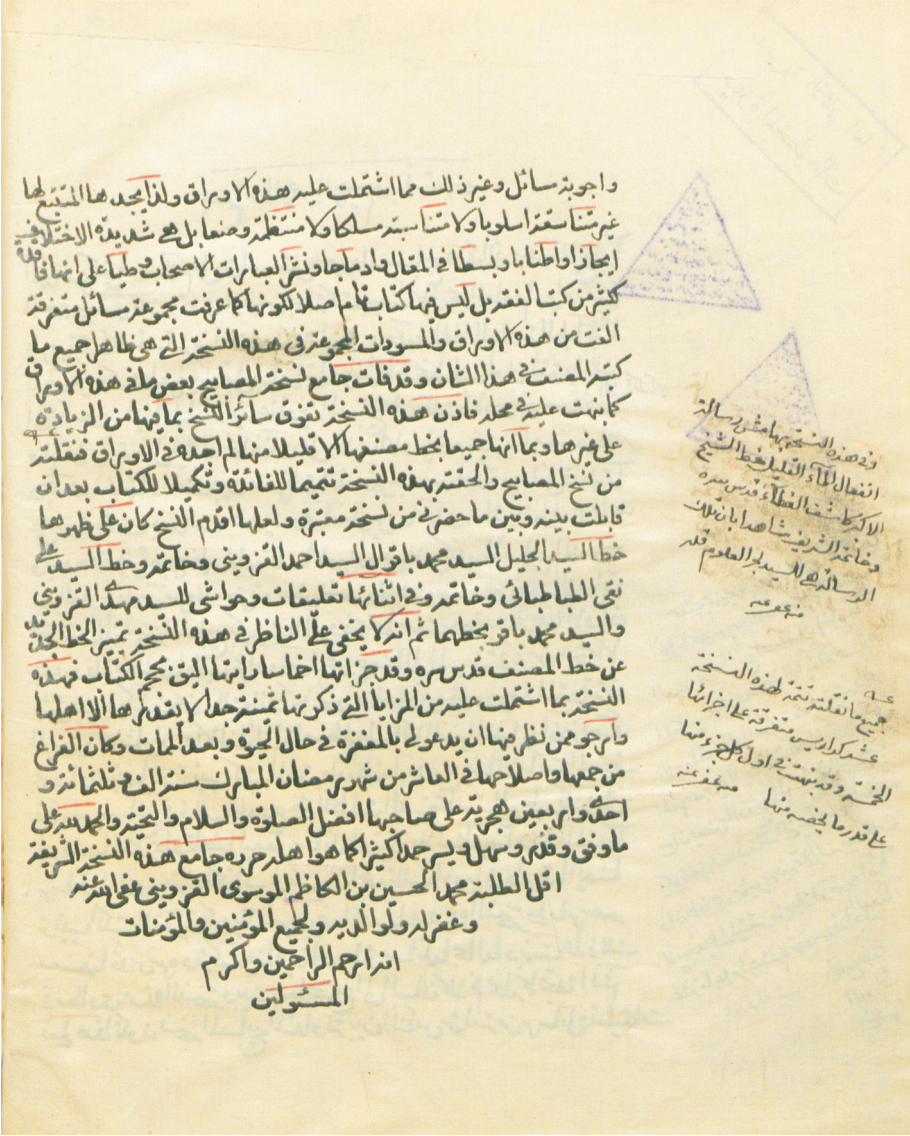 واجوبة مسائل وغير ذلك مما اشتملت عليه هذه الاوراق ولذا يجدها المتتبع لها
غير متناسقة اسلوبا ولا متناسبة مسلكا ولا منتظمة وضعا بل هي شديدة الاختلاف
ايجازا واطنابا وبسطا في المقال وادماجا ونشر العبارات الاصحاب وطيا على انها فاقدة
كثير من كتب الفقه بل ليس فيها كتاب تام اصلا لكونها كما عرفت مجموعة مسائل متفرقة
الفت من هذه الاوراق والمسودات المجموعة في هذه النسخة التي هي ظاهرا جميع ما
كتبه المصنف في هذا الشان وقد فات جامع نسخة المصابيح بعض ما في هذه الاوراق
كما نبهت عليه في محله فاذن هذه النسخة تفوق سائر النسخ بما فيها من الزيادة
على غيرها وبما انها جميعا بخط مصنفها الا قليلا منها لم اجده في الاوراق فنقلته
من نسخ المصابيح والحقته بهذه النسخة تتميما للفائدة وتكميلا للكتاب بعد ان
قابلت بينه وبين ما حضرني من نسخة معتبرة ولعلها اقدم النسخ كان على ظهرها
خط السيد الجليل السيد محمد باقر ال السيد احمد القزويني وخاتمه وخط السيد علي
نقي الطباطبائي وخاتمه وفي اثنائها تعليقات وحواشي للسيد مهدي القزويني
والسيد محمد باقر بخطهما ثم انه لا يخفى على الناظر في هذه النسخة تميز الخط الجديد
عن خط المصنف قدس سره وقد جزاتها اخماسا رايتها اليق بحجم الكتاب فهذه
النسخة بما اشتملت عليه من المزايا التي ذكرتها ثمينة جدا لا يقدرها الا اهلها
وارجو ممن نظر فيها ان يدعو لي بالمغفرة في حال الحيوة وبعد الممات وكان الفراغ
من جمعها واصلاحها في العاشر من شهر رمضان المبارك سنة الف وثلثمائة و
احدى واربعين هجرية على صاحبها افضل الصلوة والسلام والتحية والحمد لله على
ما وفق وقدر وسهل ويسر حمدا كثيرا كما هو اهله حرره جامع هذه النسخة الشريفة
اقل الطلبة محمد الحسين بن الكاظم الموسوي القزويني عفى الله عنه
وغفر له ولوالديه ولجميع المؤمنين والمؤمنات
انه ارحم الراحمين واكرم
المسئولين
وفي هذه النسخة بهامش رسالة
انفعال الماء القليل خط الشيخ
الاكبر كاشف الغطاء قدس سره
وخاتمه الشريف شاهدا بان تلك
الرسالة هي للسيد بحر العلوم قده
منه عفي عنه
جميع ما نقلته تتمة لهذه النسخة
عشر كراريس متفرقة على اجزائها
الخمسة وقد نبهت في اول كل جزء منها
على قدر ما يخصه منها منه عفي عنه